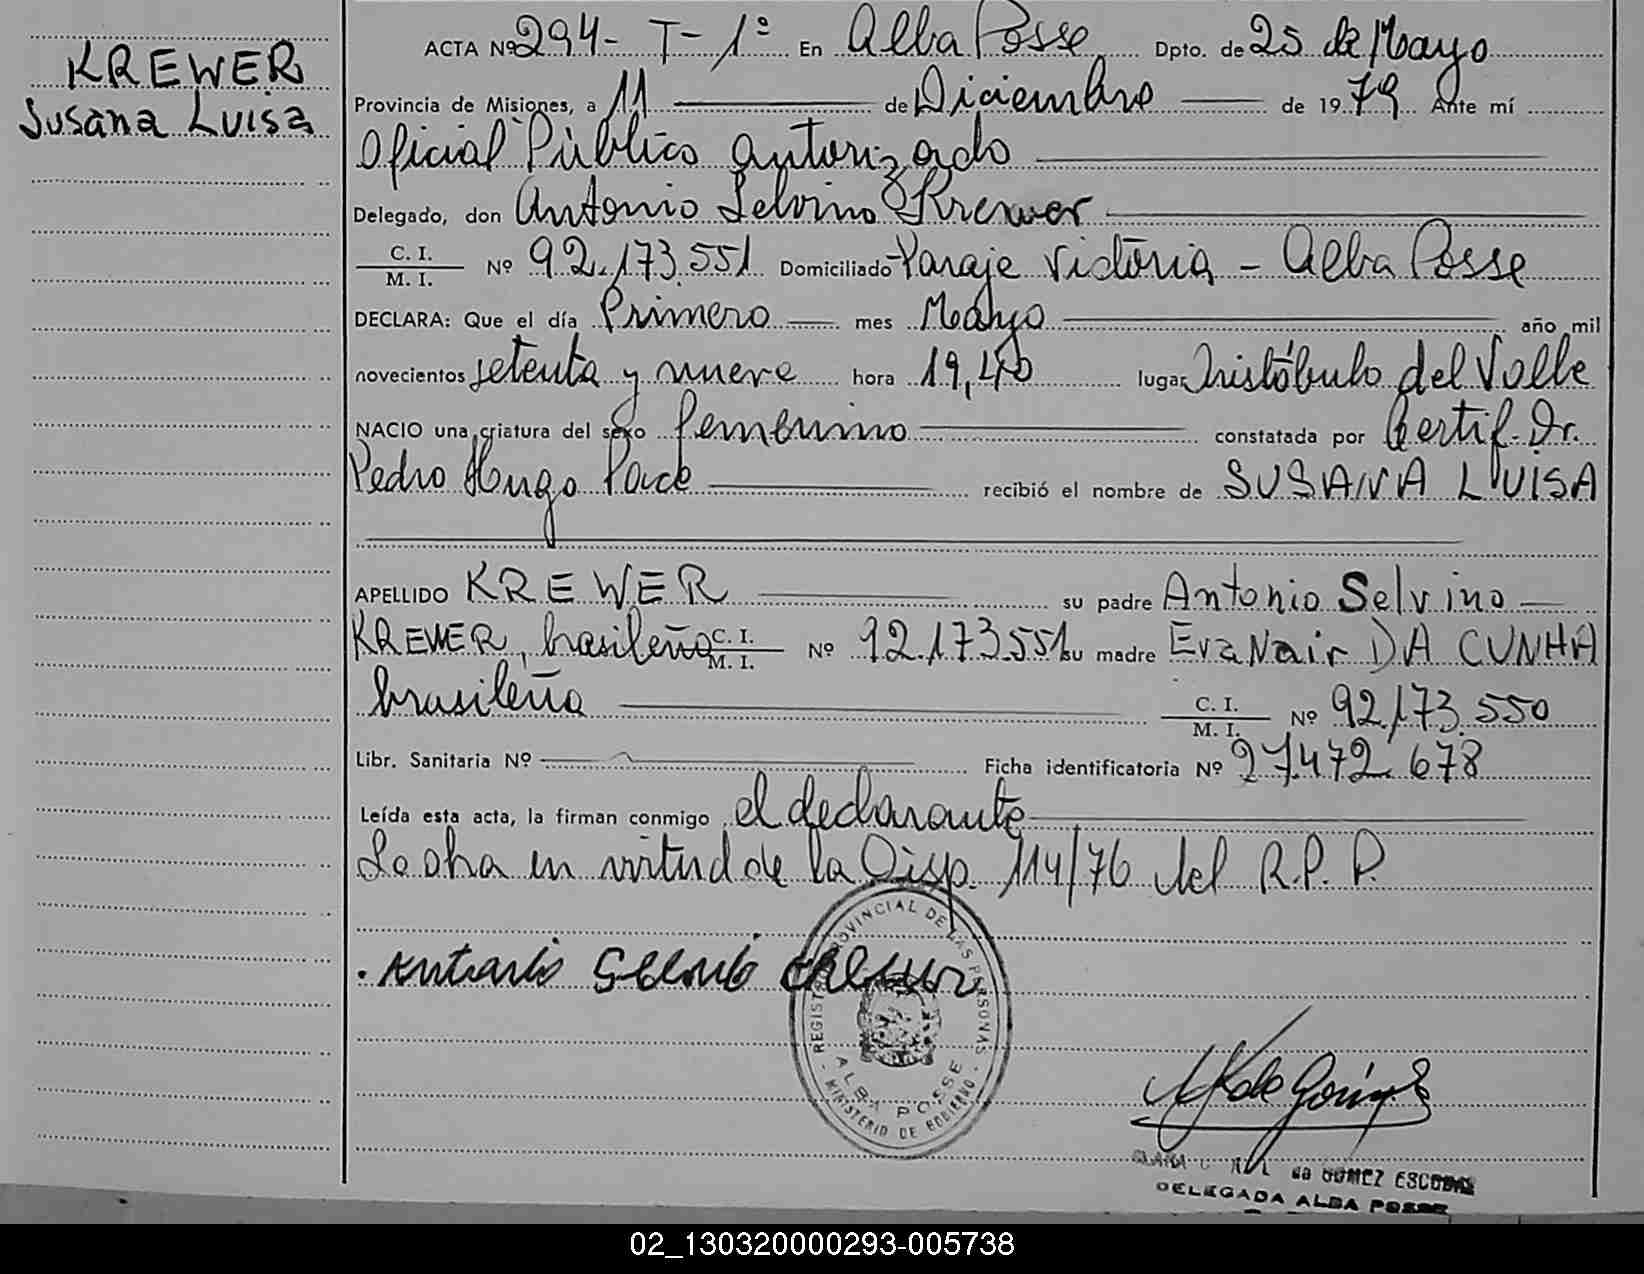 KREWER
Susana Luisa
ACTA Nº 294- T-1º En Alba Posse Dpto. de 25 de Mayo
Provincia de Misiones, a 11 de Diciembre de 19 79 Ante mí
Oficial Público autorizado
Delegado, don Antonio Selvino Krewer
C. I.
M. I.
Nº 92.173.551 Domiciliado Paraje Victoria - Alba Posse
DECLARA: Que el día Primero mes Mayo año mil
novecientos setenta y nueve hora 19,40 lugar Aristóbulo del Valle
NACIO una criatura del sexo femenino constatada por Certif. Dr.
Pedro Hugo Pace recibió el nombre de SUSANA LUISA
APELLIDO KREWER su padre Antonio Selvino
KREWER, brasileño C. I. M. I. Nº 92.173.551 su madre Eva Nair DA CUNHA
brasileña C. I. M. I. Nº 92.173.550
Libr. Sanitaria Nº Ficha identificatoria Nº 27.472.678
Leída esta acta, la firman conmigo el declarante
Labra en virtud de la Disp. 114/76 del R.P.P.
REGISTRO PROVINCIAL DE LAS PERSONAS
ALBA POSSE
MINISTERIO DE GOBIERNO
de GOMEZ ESCOBAR
DELEGADA ALBA POSSE
02_130320000293-005738